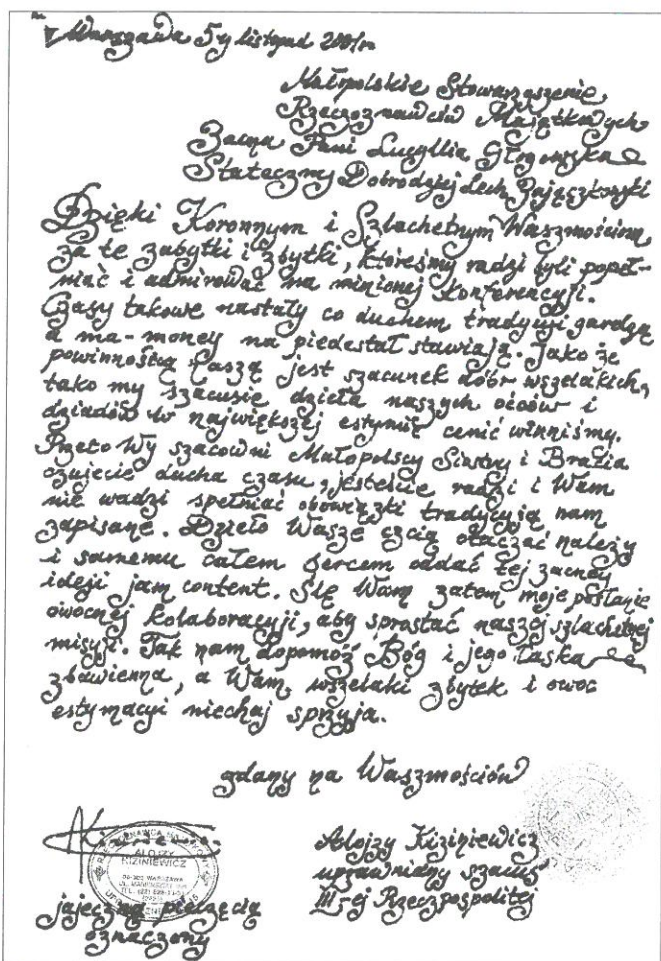 Warszawa 5-y listopad 2001 r.
Małopolskie Stowarzyszenie
Rzeczoznawców Majątkowych
Zacna Pani Lucyllia Głogowska
Stateczny Dobrodziej Lech Zajączkowski
Dzięki Koronnym i Szlachetnym Waszmościom
za te zabytki i zbytki, któreśmy radzi byli popeł-
niać i admirować na minionej Konferencyji.
Czasy takowe nastały co duchem tradycyji gardzą
a ma-money na piedestał stawiają. Jako że
powinnością naszą jest szacunek dóbr wszelakich,
tako my szacusie dzieła naszych ojców i
dziadów w największej estymie cenić winniśmy.
Przeto Wy szacowni Małopolscy Siostry i Bracia
czujecie ducha czasu, jesteście radzi i Wam
nie wadzi spełniać obowiązki tradycyją nam
zapisane. Dzieło Wasze czcią otaczać należy
i samemu całem sercem oddać tej zacnej
ideji jam content. Ślę Wam zatem moje posłanie
owocnej kolaboracyji, aby sprostać naszej szlachetnej
misyji. Tak nam dopomóż Bóg i jego Łaska
zbawienna, a Wam wszelaki zbytek i owoc
estymacyi niechaj sprzyja.
zdany na Waszmościów
ALOJZY
KIZINIEWICZ
jajeczną pieczęcią
oznaczony
Alojzy Kiziniewicz
uprawniany szacus
III-ej Rzeczpospolitej